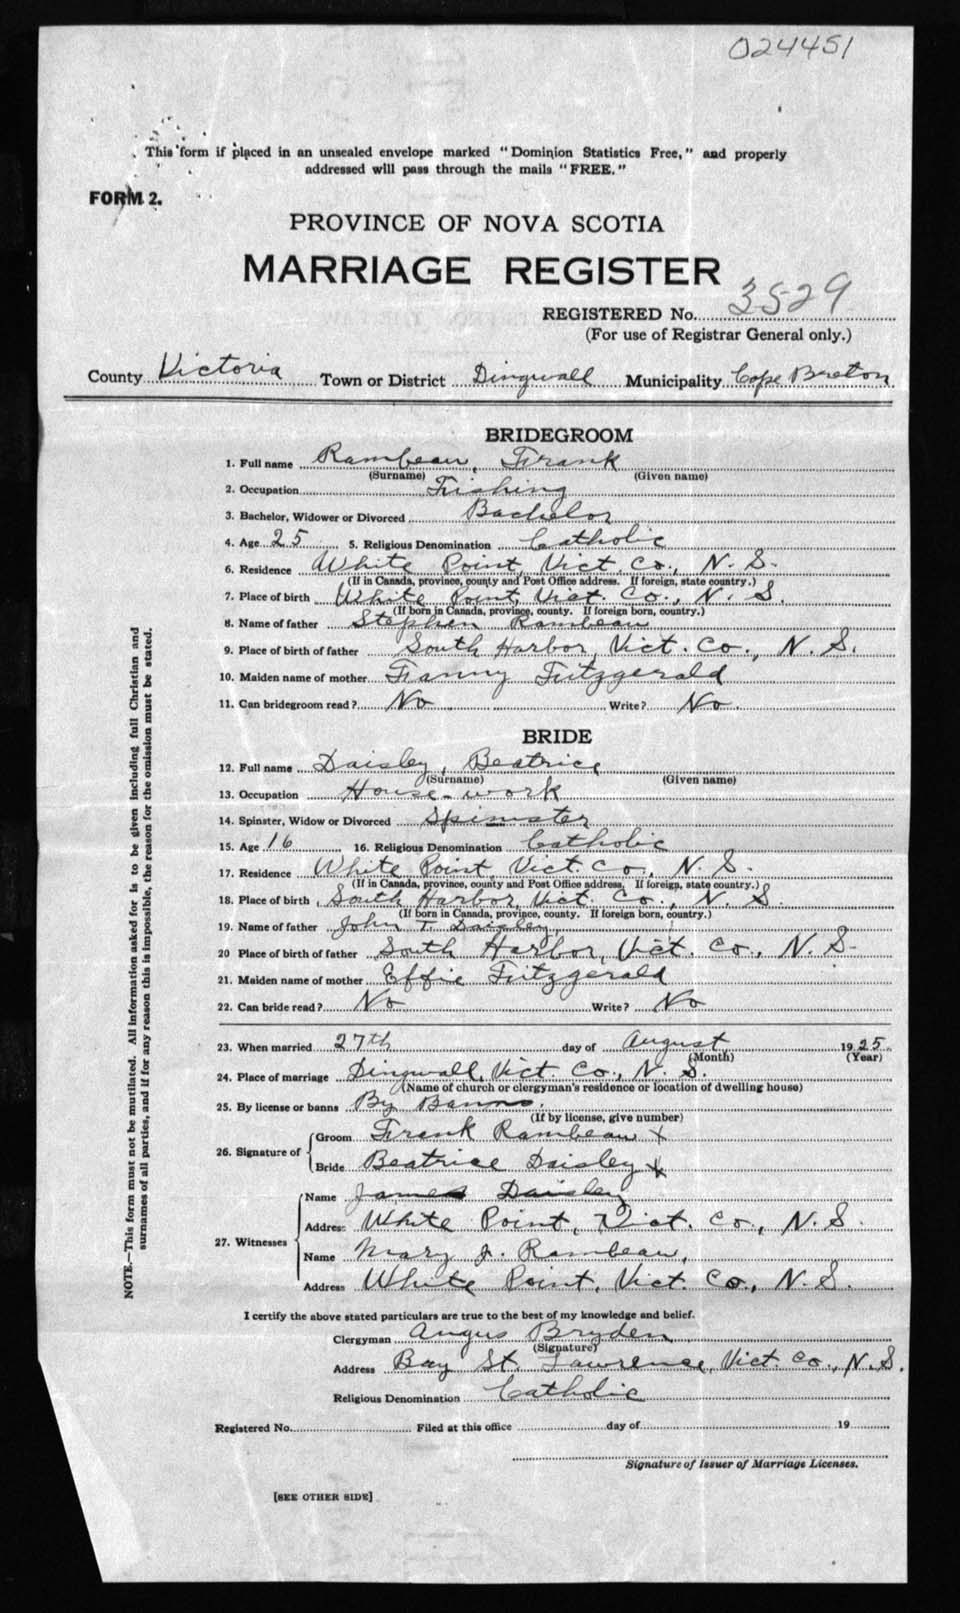 024451
This form if placed in an unsealed envelope marked "Dominion Statistics Free," and properly
addressed will pass through the mails "FREE."
FORM 2.
PROVINCE OF NOVA SCOTIA
MARRIAGE REGISTER
REGISTERED No. 3529
(For use of Registrar General only.)
County Victoria Town or District Dingwall Municipality Cape Breton
BRIDEGROOM
1. Full name Rambeau, Frank
(Surname) (Given name)
2. Occupation Fishing
3. Bachelor, Widower or Divorced Bachelor
4. Age 25 5. Religious Denomination Catholic
6. Residence White Point, Vict. Co., N. S.
(If in Canada, province, county and Post Office address. If foreign, state country.)
7. Place of birth White Point, Vict. Co., N. S.
(If born in Canada, province, county. If foreign born, country.)
8. Name of father Stephen Rambeau
9. Place of birth of father South Harbor, Vict. Co., N. S.
10. Maiden name of mother Fanny Fitzgerald
11. Can bridegroom read? No Write? No.
BRIDE
12. Full name Daisley, Beatrice
(Surname) (Given name)
13. Occupation House-work
14. Spinster, Widow or Divorced Spinster
15. Age 16 16. Religious Denomination Catholic
17. Residence White Point, Vict. Co., N. S.
(If in Canada, province, county and Post Office address. If foreign, state country.)
18. Place of birth South Harbor, Vict. Co., N. S.
(If born in Canada, province, county. If foreign born, country.)
19. Name of father John T. Daisley,
20 Place of birth of father South Harbor, Vict. Co., N. S.
21. Maiden name of mother Effie Fitzgerald
22. Can bride read? No Write? No
23. When married 27th day of August 1925
(Month) (Year)
24. Place of marriage Dingwall, Vict. Co., N. S.
(Name of church or clergyman's residence or location of dwelling house)
25. By license or banns By Banns.
(If by license, give number)
26. Signature of
Groom Frank Rambeau X
Bride Beatrice Daisley X
27. Witnesses
Name James Daisley
Address White Point, Vict. Co., N. S.
Name Mary J. Rambeau,
Address White Point, Vict. Co., N. S.
I certify the above stated particulars are true to the best of my knowledge and belief.
Clergyman Angus Bryden
(Signature)
Address Bay St. Lawrence, Vict. Co., N. S.
Religious Denomination Catholic
Registered No. Filed at this office day of 19
Signature of Issuer of Marriage Licenses.
[SEE OTHER SIDE]
NOTE.—This form must not be mutilated. All information asked for is to be given including full Christian and
surnames of all parties, and if for any reason this is impossible, the reason for the omission must be stated.